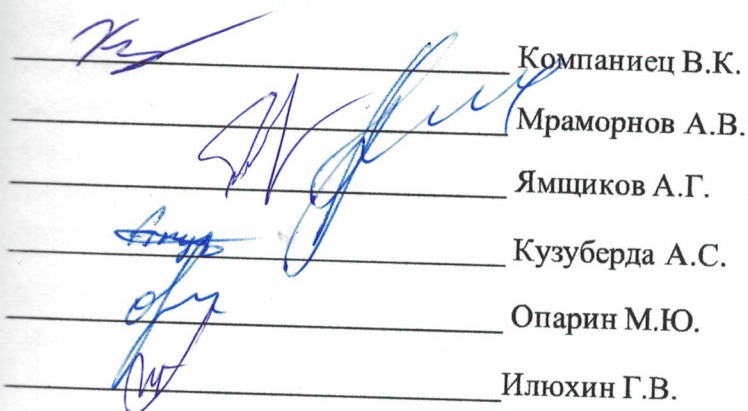 Компаниец В.К.
Мраморнов А.В.
Ямщиков А.Г.
Кузуберда А.С.
Опарин М.Ю.
Илюхин Г.В.